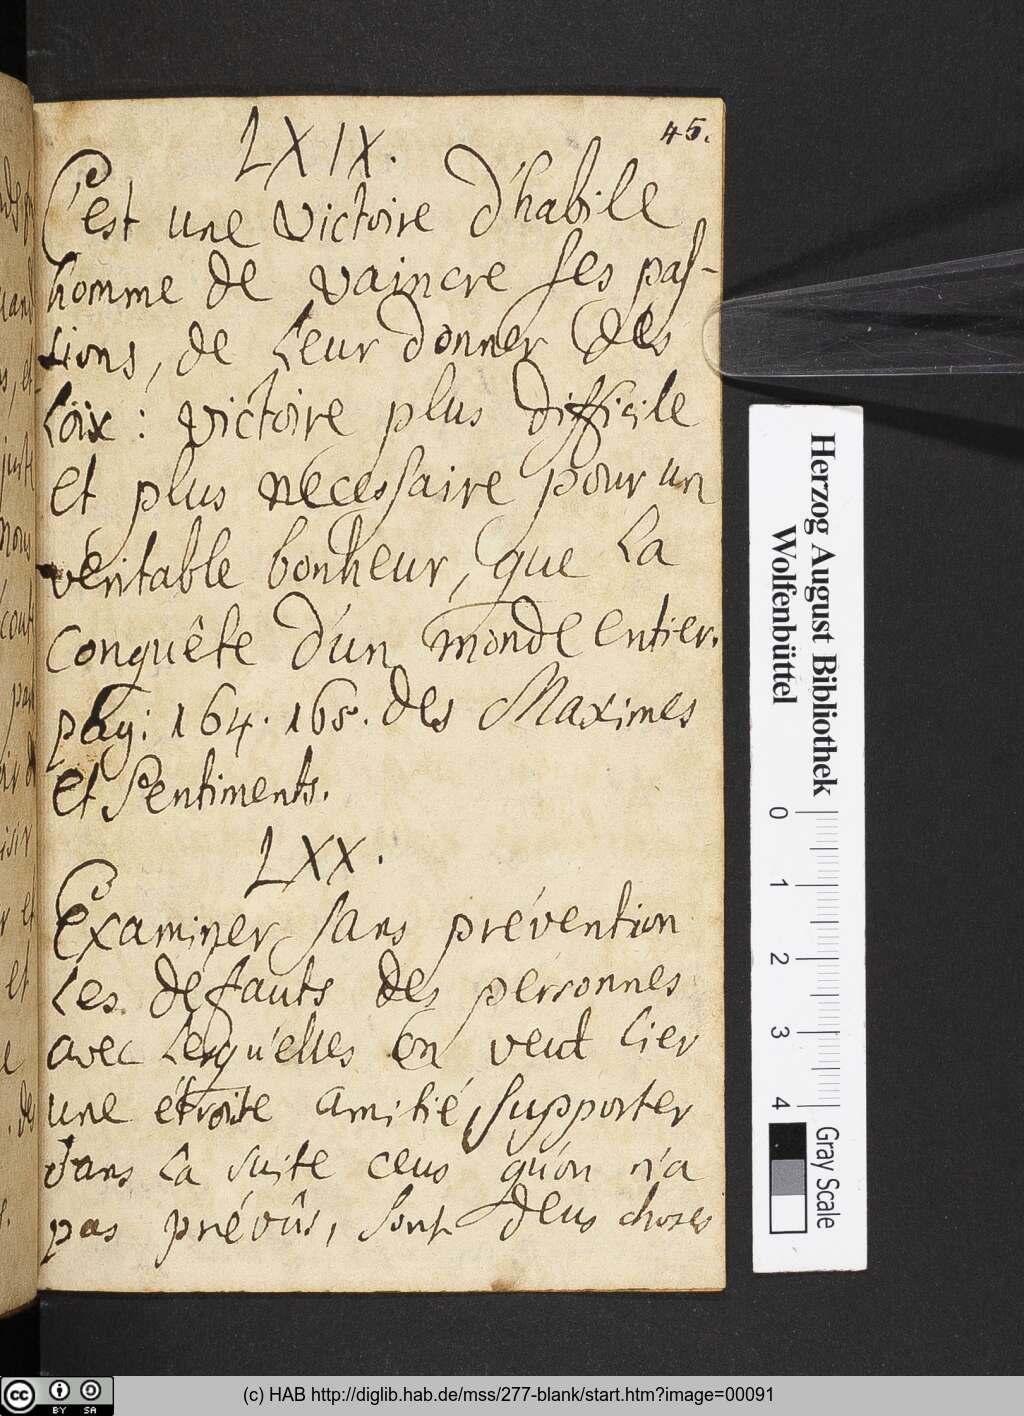 45.
LXIX.
C'est une victoire d'habile
homme de vaincre ses pas-
sions, de leur donner des
Loix : victoire plus difficile
et plus necessaire pour un
veritable bonheur, que la
conquête d'un monde entier.
pag: 164. 165. des Maximes
et Sentiments.
LXX.
Examiner sans prévention
les defauts des personnes
avec lesqu'elles on veut lier
une étroite amitié, supporter
dans la suite ceus qu'on n'a
pas prévûs, sont deus choses
Herzog August Bibliothek
Wolfenbüttel
0 1 2 3 4
Gray Scale
cc BY SA
(c) HAB http://diglib.hab.de/mss/277-blank/start.htm?image=00091